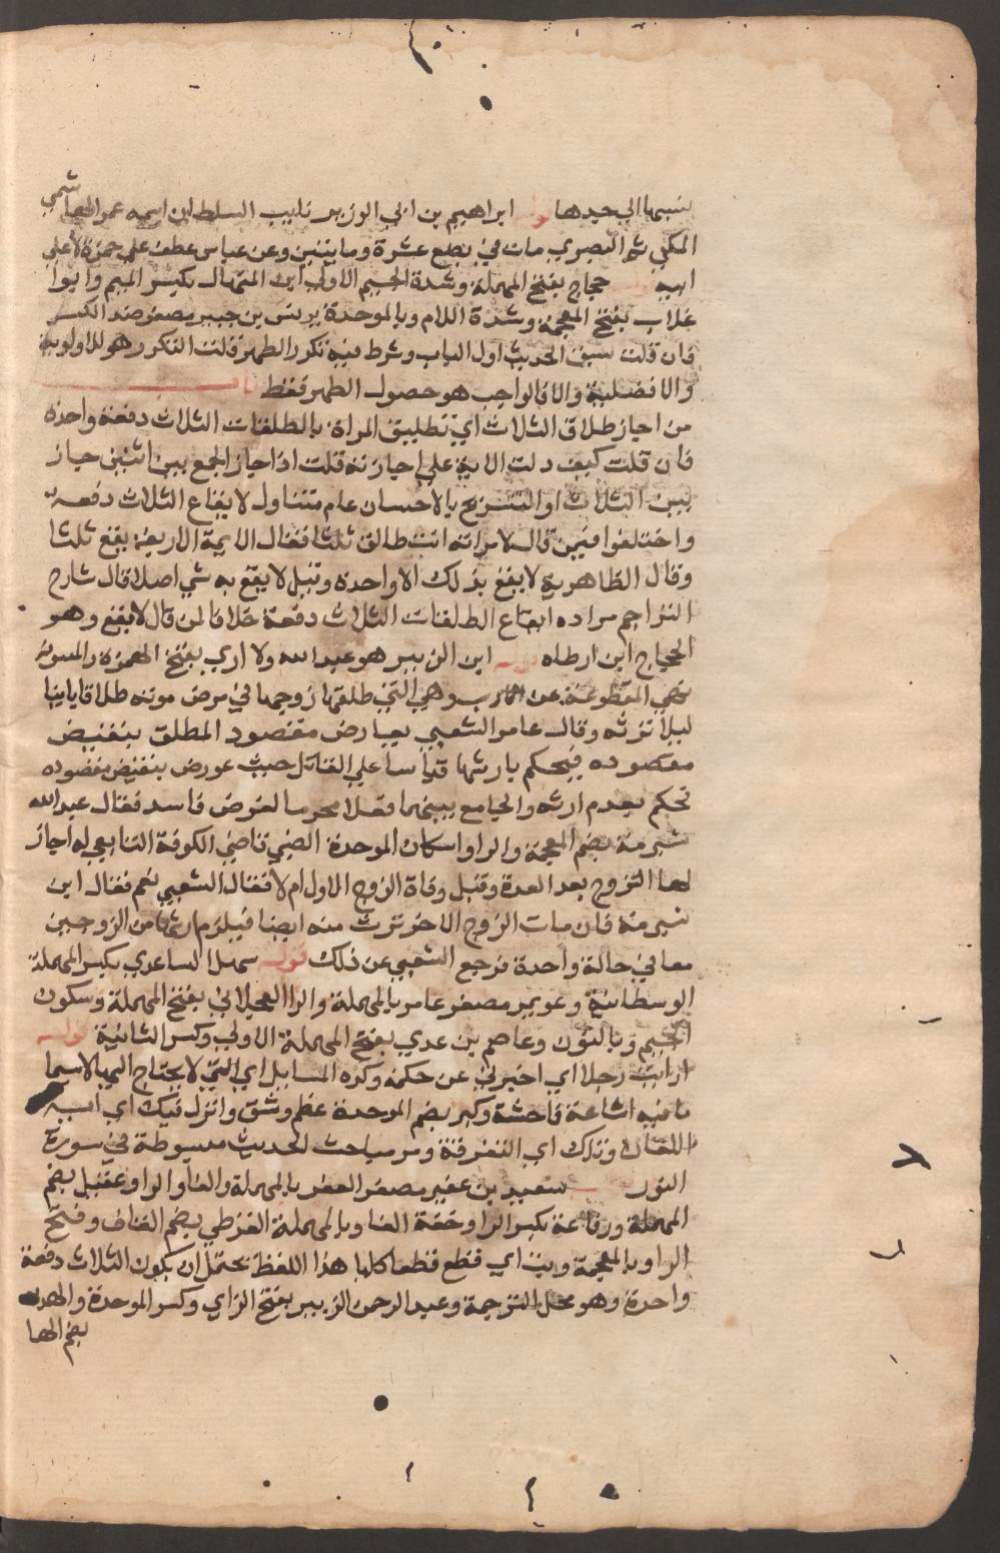 ينسبها الي جدها قوله ابراهيم بن ابي الوزير بلبيب السلطان اسمه عمر الهاشمي
المكي ثم البصري مات في بضع عشرة ومايتين وعن عباس عطف علي حمزة لا علي
ابيه حجاج بفتح المهملة وشدة الجيم الاولي ابن المنهال بكسر الميم وابوا
غلاب بفتح المعجمة وشدة اللام وبالموحدة يونس بن جبير مصغر ضد الكسر
فان قلت سبق الحديث اول الباب وشرط فيه تكرر الطهر قلت التكرر هو للاولوية
والافضلية والا فالواجب هو حصول الطهر فقط باب
من اجاز طلاق الثلاث اي تطليق المراة بالطلقات الثلاث دفعة واحدة
فان قلت كيف دلت الاية علي اجازته قلت اذا جاز الجمع بين اثنين جاز
بين الثلاث او التسريح بالاحسان عام متناول لايقاع الثلاث دفعة
واختلفوا فيمن قال لامراته انت طالق ثلثا فقال الايمة الاربعة يقع ثلثا
وقال الظاهرية لا يقع بذلك الا واحدة وقيل لا يقع به شي اصلا قال شارح
التراجم مراده ايقاع الطلقات الثلاث دفعة خلافا لمن قال لا يقع وهو
الحجاج ابن ارطاه قوله ابن الزبير هو عبد الله ولا اري بفتح الهمزة والمبتوتة
هي المقطوعة عن الارث وهي التي طلقها زوجها في مرض موته طلاقا باينا
ليلا ترثه وقال عامر الشعبي يعارض مقصود المطلق بنقيض
مقصوده فيحكم بارثها قياسا علي القاتل حيث عورض بنقيض مقصوده
تحكم بعدم ارثه والجامع بينهما فعلا محرما لغرض فاسد فقال عبد الله
شبرمة بضم المعجمة والرا واسكان الموحدة الضبي قاضي الكوفة التابعي له اجاز
لها التزوج بعد العدة وقبل وفاة الزوج الاول ام لا فقال الشعبي نعم فقال ابن
شبرمة فان مات الزوج الاخر ترث منه ايضا فيلزم ارثها من الزوجين
معا في حالة واحدة فرجع الشعبي عن ذلك قوله سهل الساعدي بكسر المهملة
الوسطانية وعويمر مصغر عامر بالمهملة والرا العجلاني بفتح المهملة وسكون
الجيم وبالنون وعاصم بن عدي بفتح المهملة الاولي وكسر الثانية قوله
ارايت رجلا اي اخبرني عن حكمه وكره المسايل اي التي لا يحتاج اليها لاسيما
ما فيه اشاعة فاحشة وكبر بضم الموحدة عظم وشق وانزل فيك اي اية
اللعان وتلك اي التفرقة ومر مباحث الحديث مبسوطة في سورة
النور سعيد بن عفير مصغر العفر بالمهملة والفا والرا وعقيل بضم
المهملة ورفاعة بكسر الرا وخفة الفا وبالمهملة القرظي بضم القاف وفتح
الرا وبالمعجمة وبت اي قطع قطعا كليا هذا اللفظ يحتمل ان يكون الثلاث دفعة
واحدة وهو محل الترجمة وعبد الرحمن الزبير بفتح الزاي وكسر الموحدة والهدبة
بضم الها